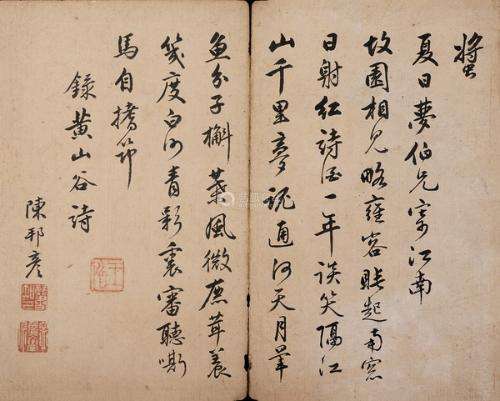 夏日夢伯兄寄江南
故園相見略雍容睡起南窓
日射紅詩酒一年談笑隔江
山千里夢魂通河天月暈
魚分子槲葉風微鹿茸養
幾度白沙青影裏審聽嘶
馬自搘筇
錄黃山谷詩
陳邦彥